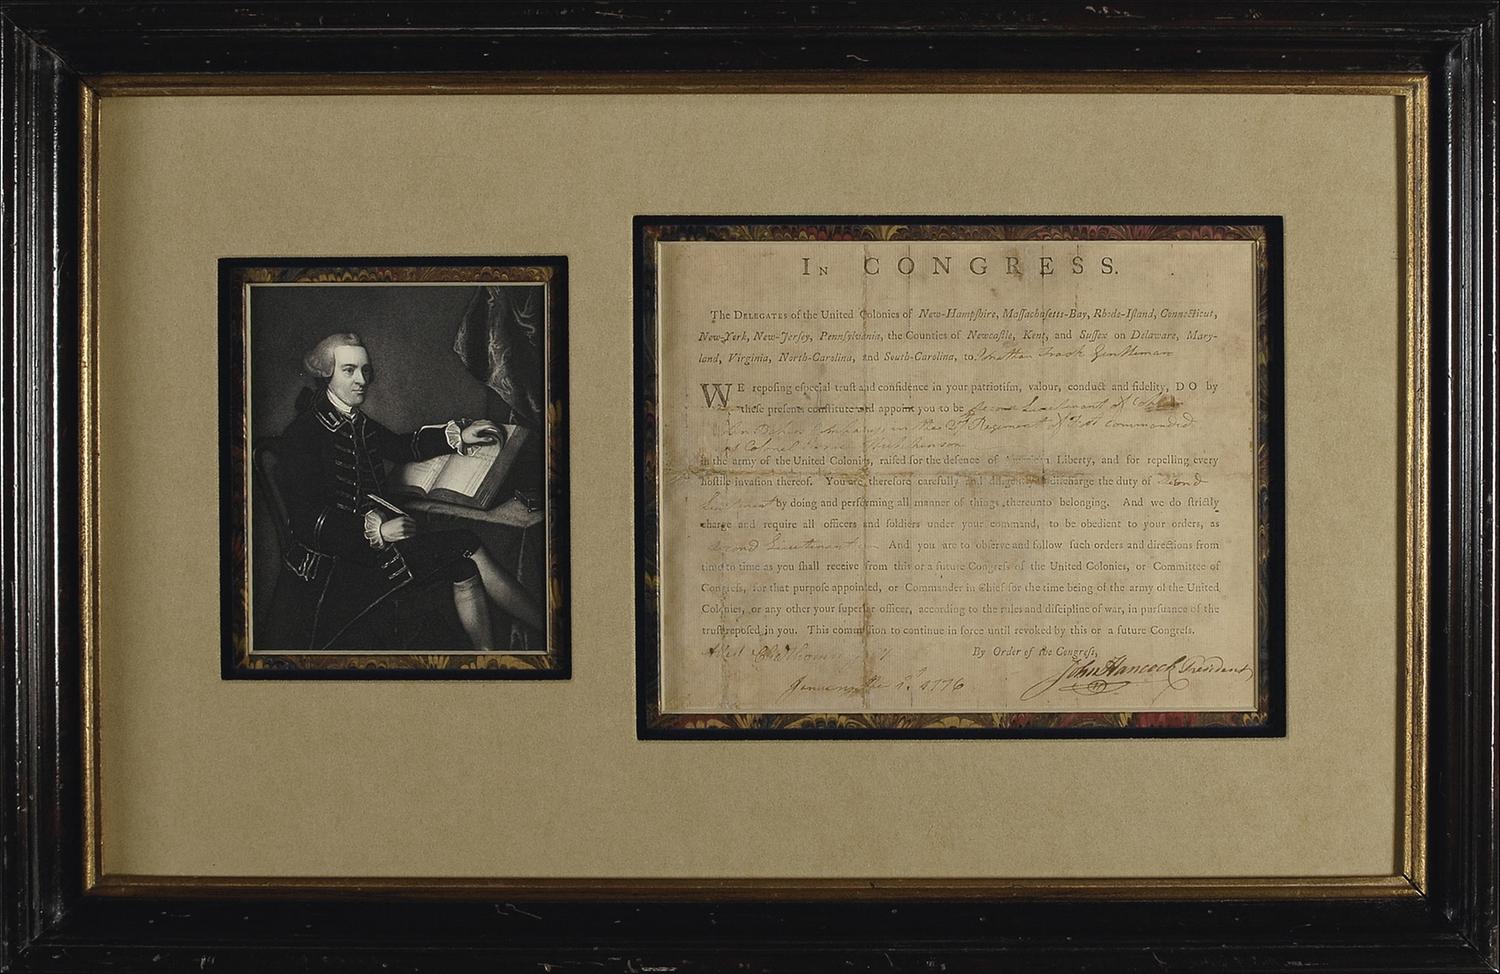 In CONGRESS.
The DELEGATES of the United Colonies of New-Hampſhire, Maſſachuſetts-Bay, Rhode-Iſland, Connecticut,
New-York, New-Jerſey, Pennſylvania, the Counties of Newcaſtle, Kent, and Suſſex on Delaware, Mary-
land, Virginia, North-Carolina, and South-Carolina, to Jonathan Trask Gentleman
WE repoſing eſpecial truſt and confidence in your patriotiſm, valour, conduct and fidelity, DO by
theſe preſents conſtitute and appoint you to be Second Lieutenant of
Company in the Regiment of commanded
Colonel Hutchinson
in the army of the United Colonies, raiſed for the defence of American Liberty, and for repelling every
hoſtile invaſion thereof. You are therefore carefully and diligently to diſcharge the duty of Second
Lieutenant by doing and performing all manner of things thereunto belonging. And we do ſtrictly
charge and require all officers and ſoldiers under your command, to be obedient to your orders, as
Second Lieutenant And you are to obſerve and follow ſuch orders and directions from
time to time as you ſhall receive from this or a future Congreſs of the United Colonies, or Committee of
Congreſs, for that purpoſe appointed, or Commander in Chief for the time being of the army of the United
Colonies, or any other your ſuperior officer, according to the rules and diſcipline of war, in purſuance of the
truſt repoſed in you. This commiſſion to continue in force until revoked by this or a future Congreſs.
Attest Cha Thomson By Order of the Congreſs,
John Hancock President
January the 1st 1776